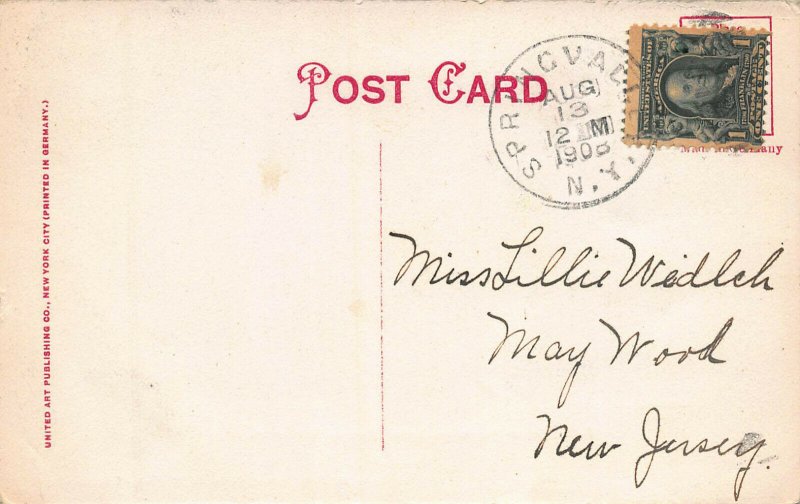 POST CARD
SPRING VALLEY
AUG
13
12 M
1908
N.Y.
Made in Germany
Miss Lillie Widlch
May Wood
New Jersey.
UNITED ART PUBLISHING CO., NEW YORK CITY (PRINTED IN GERMANY.)